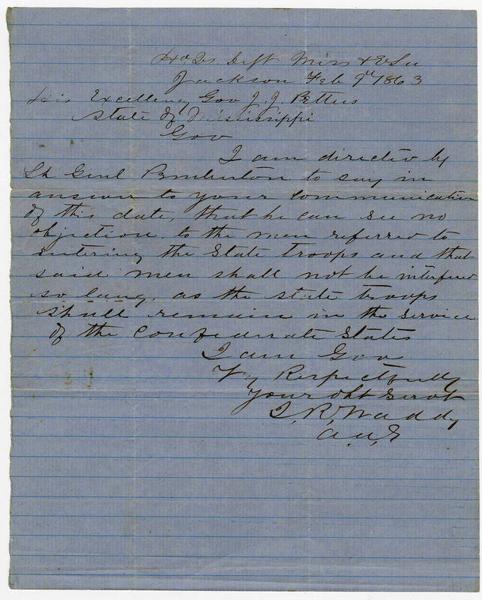 Hd Qs Dept Miss & E La
Jackson Feb 9th 1863
His Excellency Gov J. J. Pettus
State of Mississippi
Gov
I am directed by
Lt Genl Pemberton to say in
answer to your communication
of this date, that he can see no
objection to the men referred to
entering the State troops and that
said men shall not be interfered
so long, as the state troops
shall remain in the service
of the Confederate States
I am Gov
Vy Respectfully
Your Obt Servt
J. R. Waddy
A.A.G